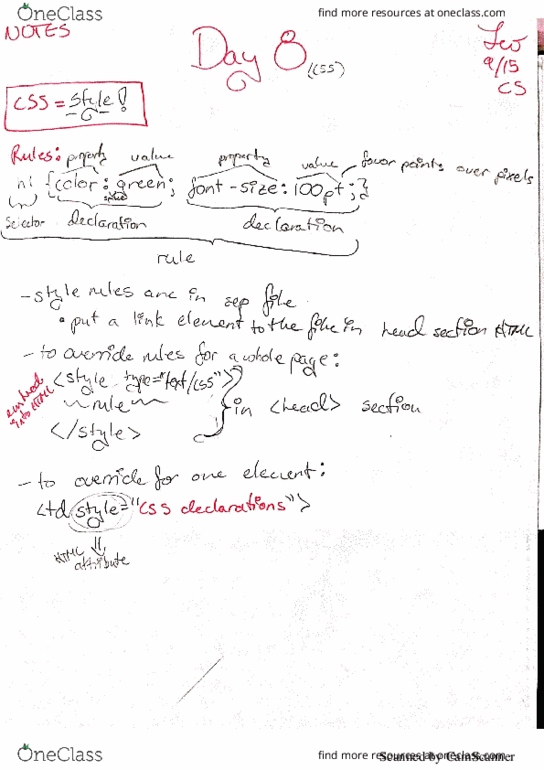 OneClass
find more resources at oneclass.com
NOTES
Day 8 (CSS)
9/15
CS
CSS = style!
Rules: property value property value favor points over pixels
h1 {color: green; font-size: 100pt;}
selector declaration declaration
rule
- style rules are in sep file
• put a link element to the file in head section HTML
- to override rules for a whole page:
<style type="text/css">
rule
</style>
} in <head> section
embed into HTML
- to override for one element:
<td style="CSS declarations">
HTML attribute
OneClass
find more resources at oneclass.com
Scanned by CamScanner